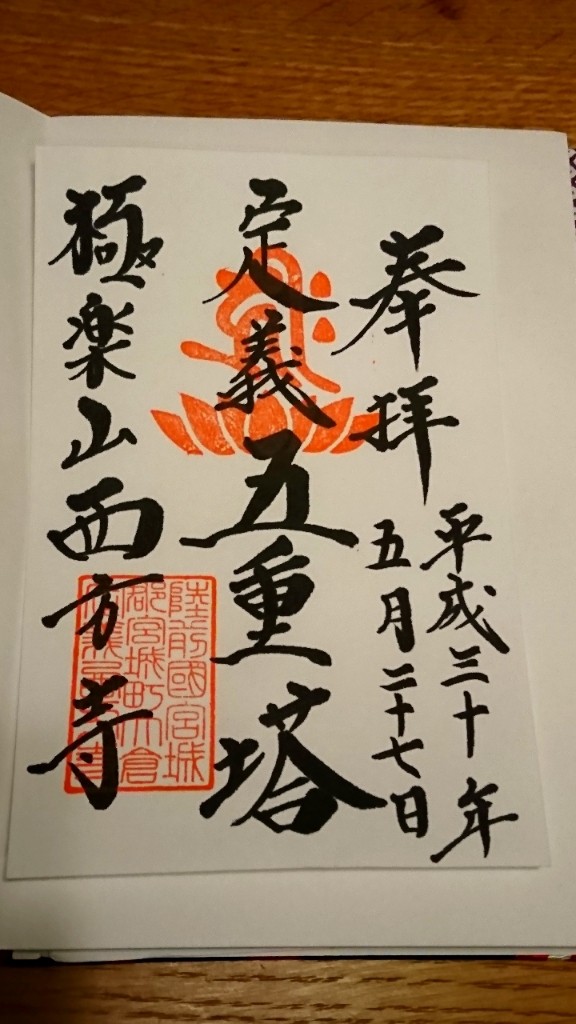 奉拝
平成三十年
五月二十七日
定義五重塔
極楽山西方寺
陸前國宮城
郡宮城町大倉